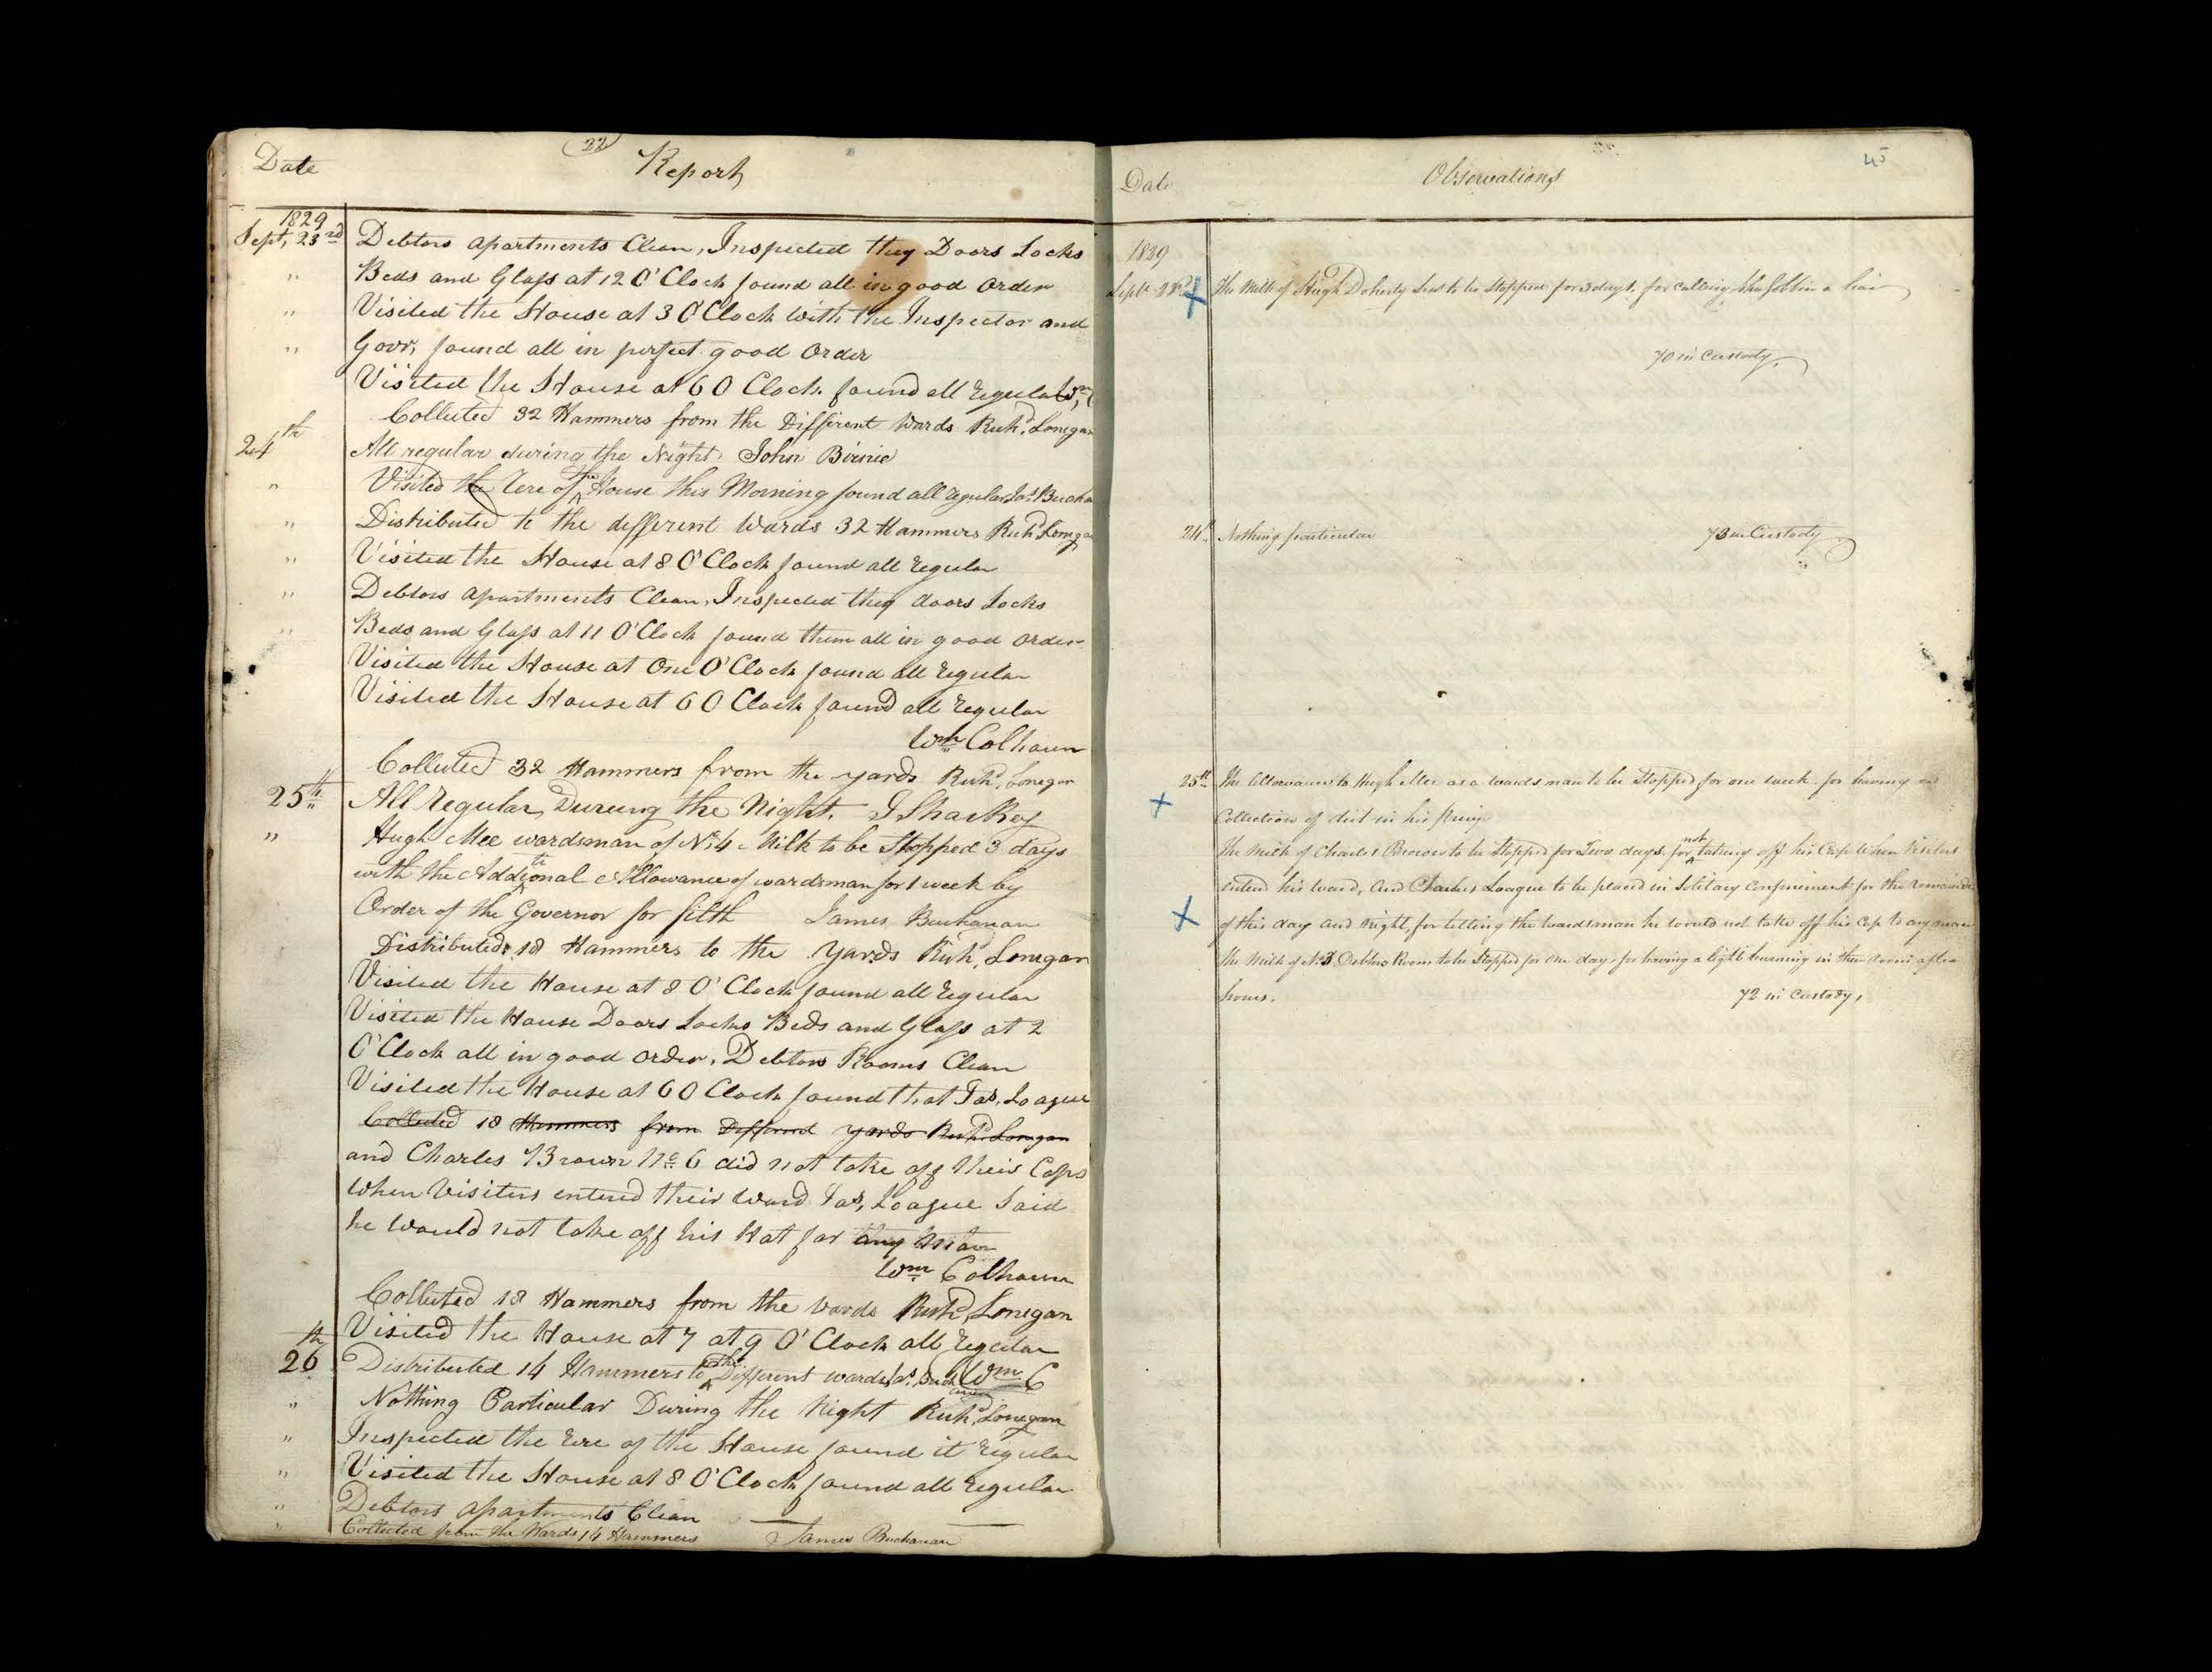 22
Date Report
1829
Sept, 23rd Debtors apartments Clean, Inspected they Doors Locks
" Beds and Glass at 12 O'Clock found all in good order
" Visited the House at 3 O'Clock with the Inspector and
" Govr, found all in perfect good Order
Visited the House at 6 O Clock found all regular Wm,
Collected 32 Hammers from the Different Wards Richd, Lonegan
24th All regular during the Night, John Birnie
" Visited the Rere of the House this Morning found all regular Jas, Bucha
" Distributed to the different Wards 32 Hammers Richd Lonega
" Visited the House at 8 O'Clock found all regular
" Debtors apartments Clean, Inspected they doors Locks
" Beds and Glass at 11 O'Clock found them all in good order
Visited the House at One O'Clock found all regular
Visited the House at 6 O Clock found all regular
Wm Colhoun
Collected 32 Hammers from the yards Richd, Lonegan
25th All regular Dureing the Night. J Sharkey
" Hugh Mee wardsman of No 4 Milk to be Stopped 3 days
with the Additional Allowance of wardsman for 1 week by
Order of the Governor for filth James Buchanan
Distributed 18 Hammers to the yards Richd, Lonegan
Visited the House at 8 O'Clock found all regular
Visited the House Doors Locks Beds and Glass at 2
O'Clock all in good order, Debtors Rooms Clean
Visited the House at 6 O Clock found that Jas, Loague
Collected 18 Hammers from Differend yards Richd Lonegan
and Charles Brown No 6 did not take off their Caps
when Visiters entered their Ward Jas, Loague Said
he would not take off his Hat for any Man
Wm Colhoun
Collected 18 Hammers from the wards Richd, Lonegan
Visited the House at 7 at 9 O'Clock all regular
26th Distributed 14 Hammers to the Different wards Jas, Buchanan Wm C
" Nothing Particular During the Night Richd, Lonegan
" Inspected the rere of the House found it regular
" Visited the House at 8 O'Clock found all regular
" Debtors apartments Clean
" Collected from the Wards 14 Hammers James Buchanan
45
Date Observations
1829
Sept 23rd The Milk of Hugh Doherty Senr to be Stopped for 3 days, for calling a liar
70 in Custody.
24th Nothing particular 73 in Custody
25th The Allowance to Hugh Mee as a wards man to be Stopped for one week for having a
Collection of dirt in his
The Milk of Charles Brown to be Stopped for Two days, for not taking off his Cap when Visitors
entered his ward, and Charles Loague to be placed in Solitary confinement for the remainder
of this day and night, for telling the wardsman he would not take off his Cap to any man
The Milk of No 3 Debtors Room to be Stopped for one day for having a light burning in their room after
hours. 72 in Custody,